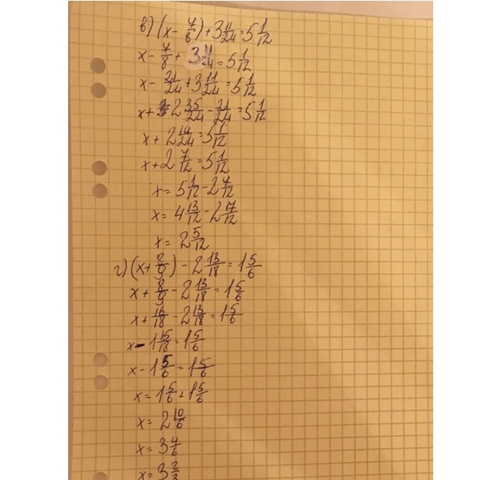 в) (x - 7/8) + 3 11/24 = 5 1/12
x - 7/8 + 3 11/24 = 5 1/12
x - 21/24 + 3 11/24 = 5 1/12
x + 2 35/24 - 21/24 = 5 1/12
x + 2 14/24 = 5 1/12
x + 2 7/12 = 5 1/12
x = 5 1/12 - 2 7/12
x = 4 13/12 - 2 7/12
x = 2 5/12
г) (x + 8/9) - 2 13/18 = 1 5/6
x + 8/9 - 2 13/18 = 1 5/6
x + 16/18 - 2 13/18 = 1 5/6
x - 1 15/18 = 1 5/6
x - 1 5/6 = 1 5/6
x = 1 5/6 + 1 5/6
x = 2 10/6
x = 3 4/6
x = 3 2/3